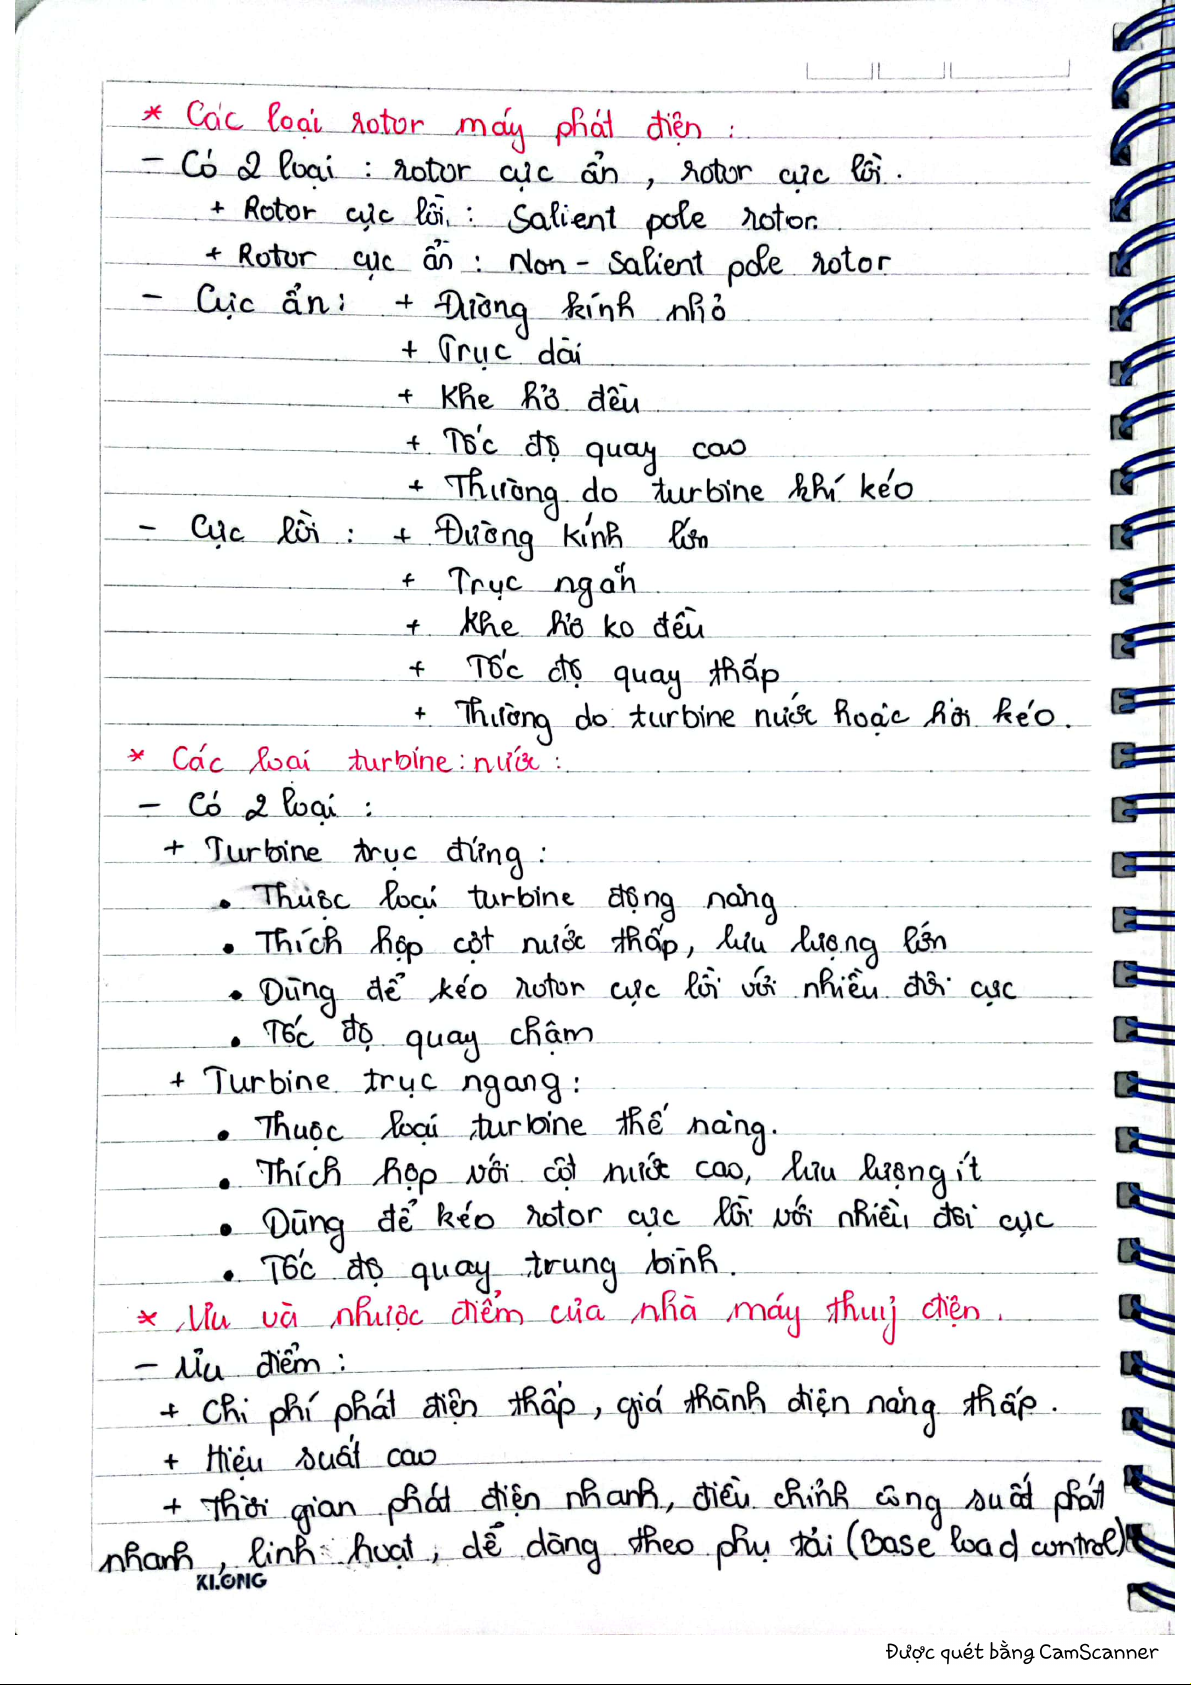 * Các loại rotor máy phát điện :
- Có 2 loại : rotor cực ẩn , rotor cực lồi .
+ Rotor cực lồi : Salient pole rotor.
+ Rotor cực ẩn : Non - Salient pole rotor
- Cực ẩn : + Đường kính nhỏ
+ Trục dài
+ Khe hở đều
+ Tốc độ quay cao
+ Thường do turbine khí kéo
- Cực lồi : + Đường kính lớn
+ Trục ngắn
+ Khe hở ko đều
+ Tốc độ quay thấp
+ Thường do turbine nước hoặc hơi kéo .
* Các loại turbine : nước :
- Có 2 loại :
+ Turbine trục đứng :
• Thuộc loại turbine động năng
• Thích hợp cột nước thấp, lưu lượng lớn
• Dùng để kéo rotor cực lồi với nhiều đôi cực
• Tốc độ quay chậm
+ Turbine trục ngang :
• Thuộc loại turbine thế năng.
• Thích hợp với cột nước cao, lưu lượng ít
• Dùng để kéo rotor cực lồi với nhiều đôi cực
• Tốc độ quay trung bình.
* Ưu và nhược điểm của nhà máy thuỷ điện .
- Ưu điểm :
+ Chi phí phát điện thấp , giá thành điện năng thấp .
+ Hiệu suất cao
+ Thời gian phát điện nhanh, điều chỉnh công suất phát
nhanh , linh hoạt , dễ dàng theo phụ tải (Base load control)
KLONG
Được quét bằng CamScanner